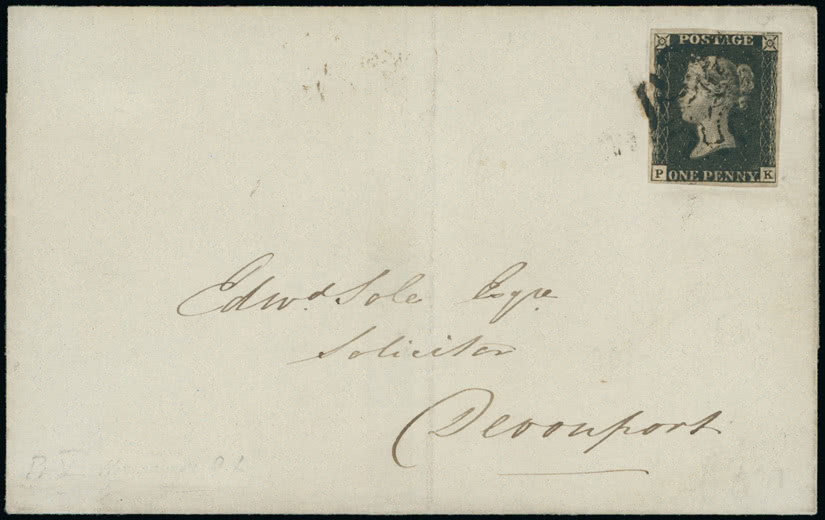 POSTAGE
P ONE PENNY K
Edwd. Sole Esqre.
Solicitor
Devonport